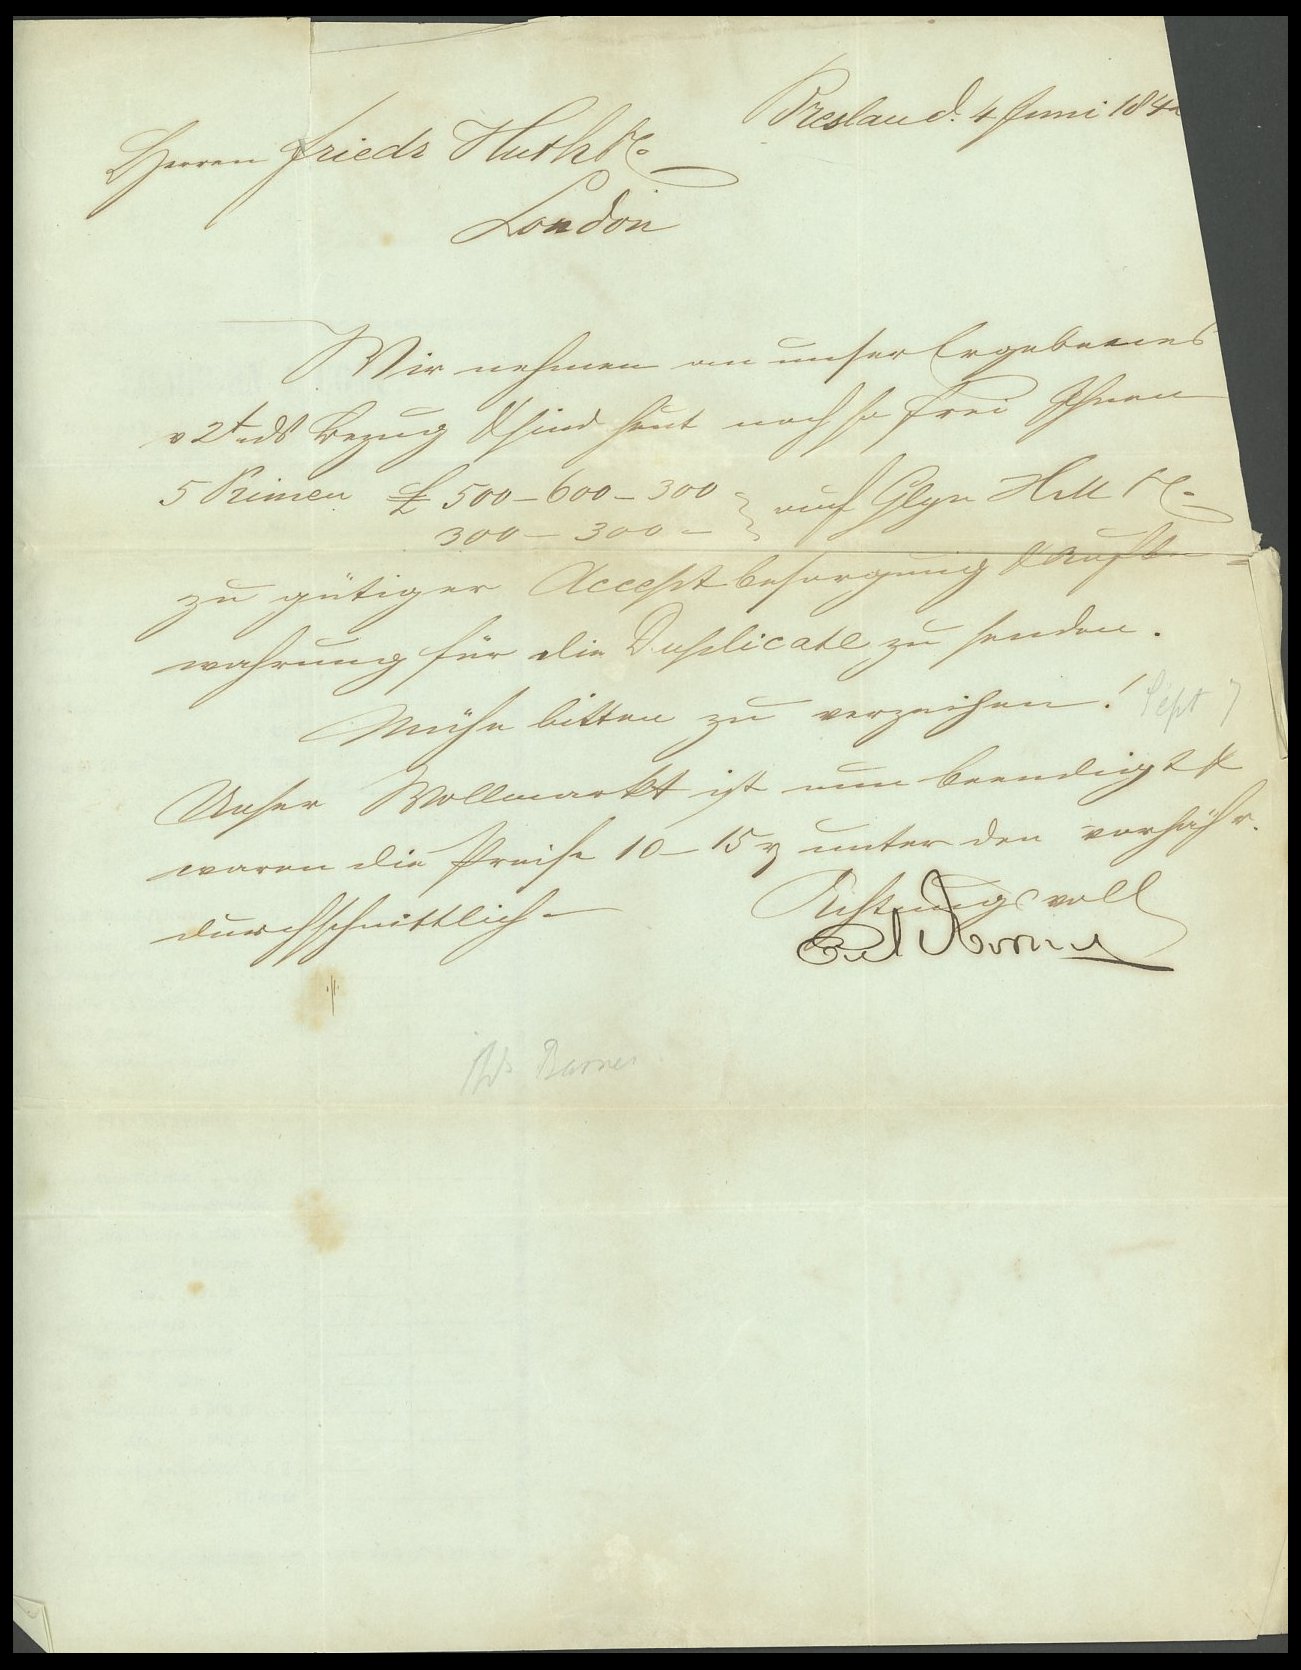 Breslau d. 4 Juni 184
Herren Friedr Huth & Co
London
Wir nehmen an unser Ergebenes
v 2t ds Bezug & sind heut noch so frei Ihnen
5 Primen £ 500 – 600 – 300 } auf Glyn Hall & Co
300 – 300 –
zu gütiger Accept besorgung & Aufbe=
wahrung für die Duplicate zu senden.
Mühe bitten zu verzeihen!
Sept
Unser Wollmarkt ist nun beendigt &
waren die Preise 10 – 15 unter den vorjähr.
durchschnittlich –
Achtungsvoll